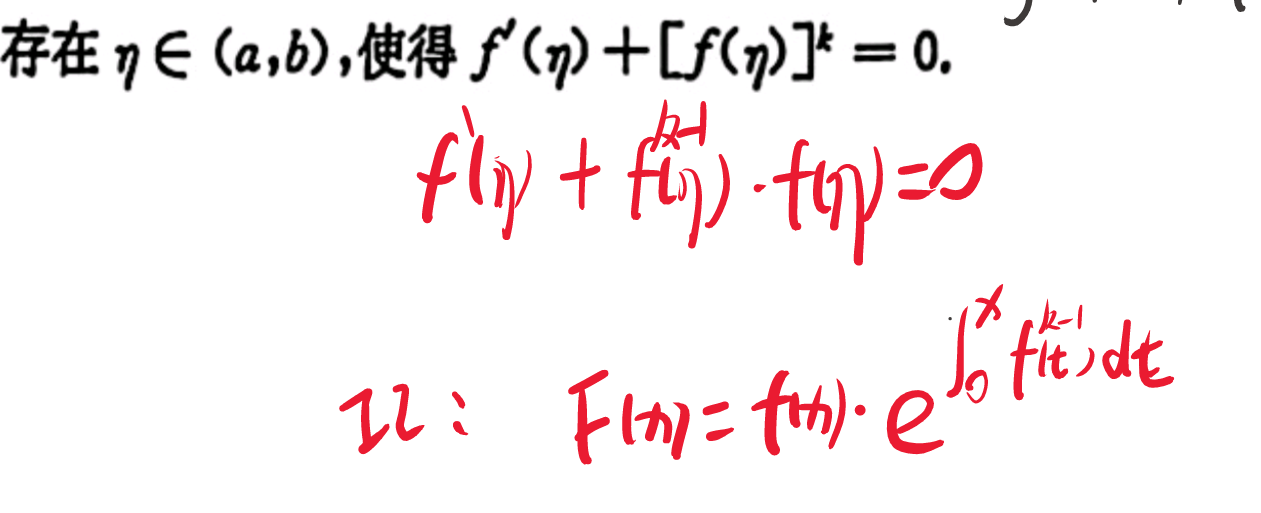 存在 η∈(a,b),使得 f′(η)+[f(η)]ᵏ=0.
f'(η) + fᵏ⁻¹(η)·f(η)=0
F(x)=f(x)·e^{∫₀ˣ fᵏ⁻¹(t)dt}